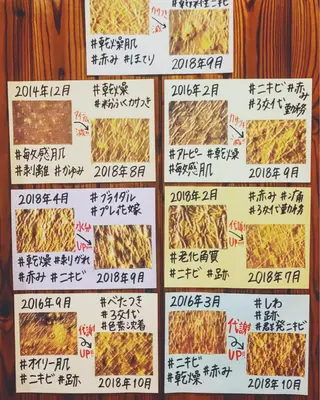 #乾燥肌
#赤み #ほてり
2018年9月
2014年12月
#乾燥
#粉ふくカサつき
#敏感肌
#剥離 #かゆみ
2018年8月
2016年2月
#ニキビ #赤み
#3交代
勤務
#アトピー #乾燥
#敏感肌
2018年9月
2018年4月
#ブライダル
#プレ花嫁
水分
UP!!
#乾燥 #剥がれ
#赤み #ニキビ
2018年9月
2018年2月
#赤み #痛
#3交代勤務
代謝
UP!!
#老化角質
#ニキビ #跡
2018年7月
2016年9月
#べたつき
#3交代
#色素沈着
代謝
UP!!
#オイリー肌
#ニキビ #跡
2018年10月
2016年3月
#しわ
#跡
#群発ニキビ
代謝
UP!!
#ニキビ
#乾燥 #赤み
2018年10月